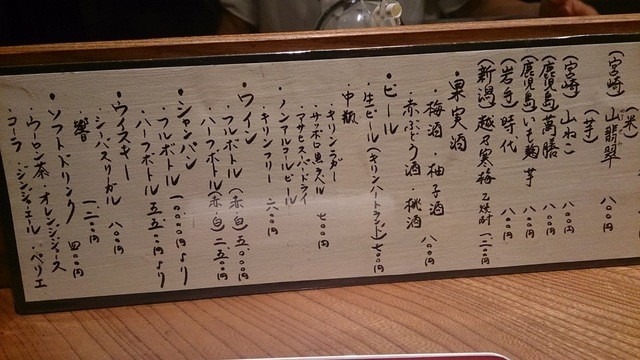 (米)
(宮崎) 山翡翠 八〇〇円
(芋)
(宮崎) 山ねこ 八〇〇円
(鹿児島) 萬膳 八〇〇円
(鹿児島) いも麹芋 八〇〇円
(岩手) 時代 八〇〇円
(新潟) 越乃寒梅 乙焼酎 一二〇〇円
・果実酒
・梅酒 ・柚子酒
・赤ぶどう酒 ・桃酒 八〇〇円
・ビール
・生ビール(キリンハートランド) 七〇〇円
・中瓶
・キリンラガー
・サッポロ黒ラベル 七〇〇円
・アサヒスーパードライ
・ノンアルコールビール
・キリンフリー 六〇〇円
・ワイン
・フルボトル(赤・白) 五〇〇〇円
・ハーフボトル(赤・白) 二五〇〇円
・シャンパン
・フルボトル 一〇〇〇〇円より
・ハーフボトル 五五〇〇円より
・ウイスキー
・シーバスリーガル 八〇〇円
・響 一二〇〇円
・ソフトドリンク 四〇〇円
・ウーロン茶・オレンジジュース
・コーラ・ジンジャエール・ペリエ